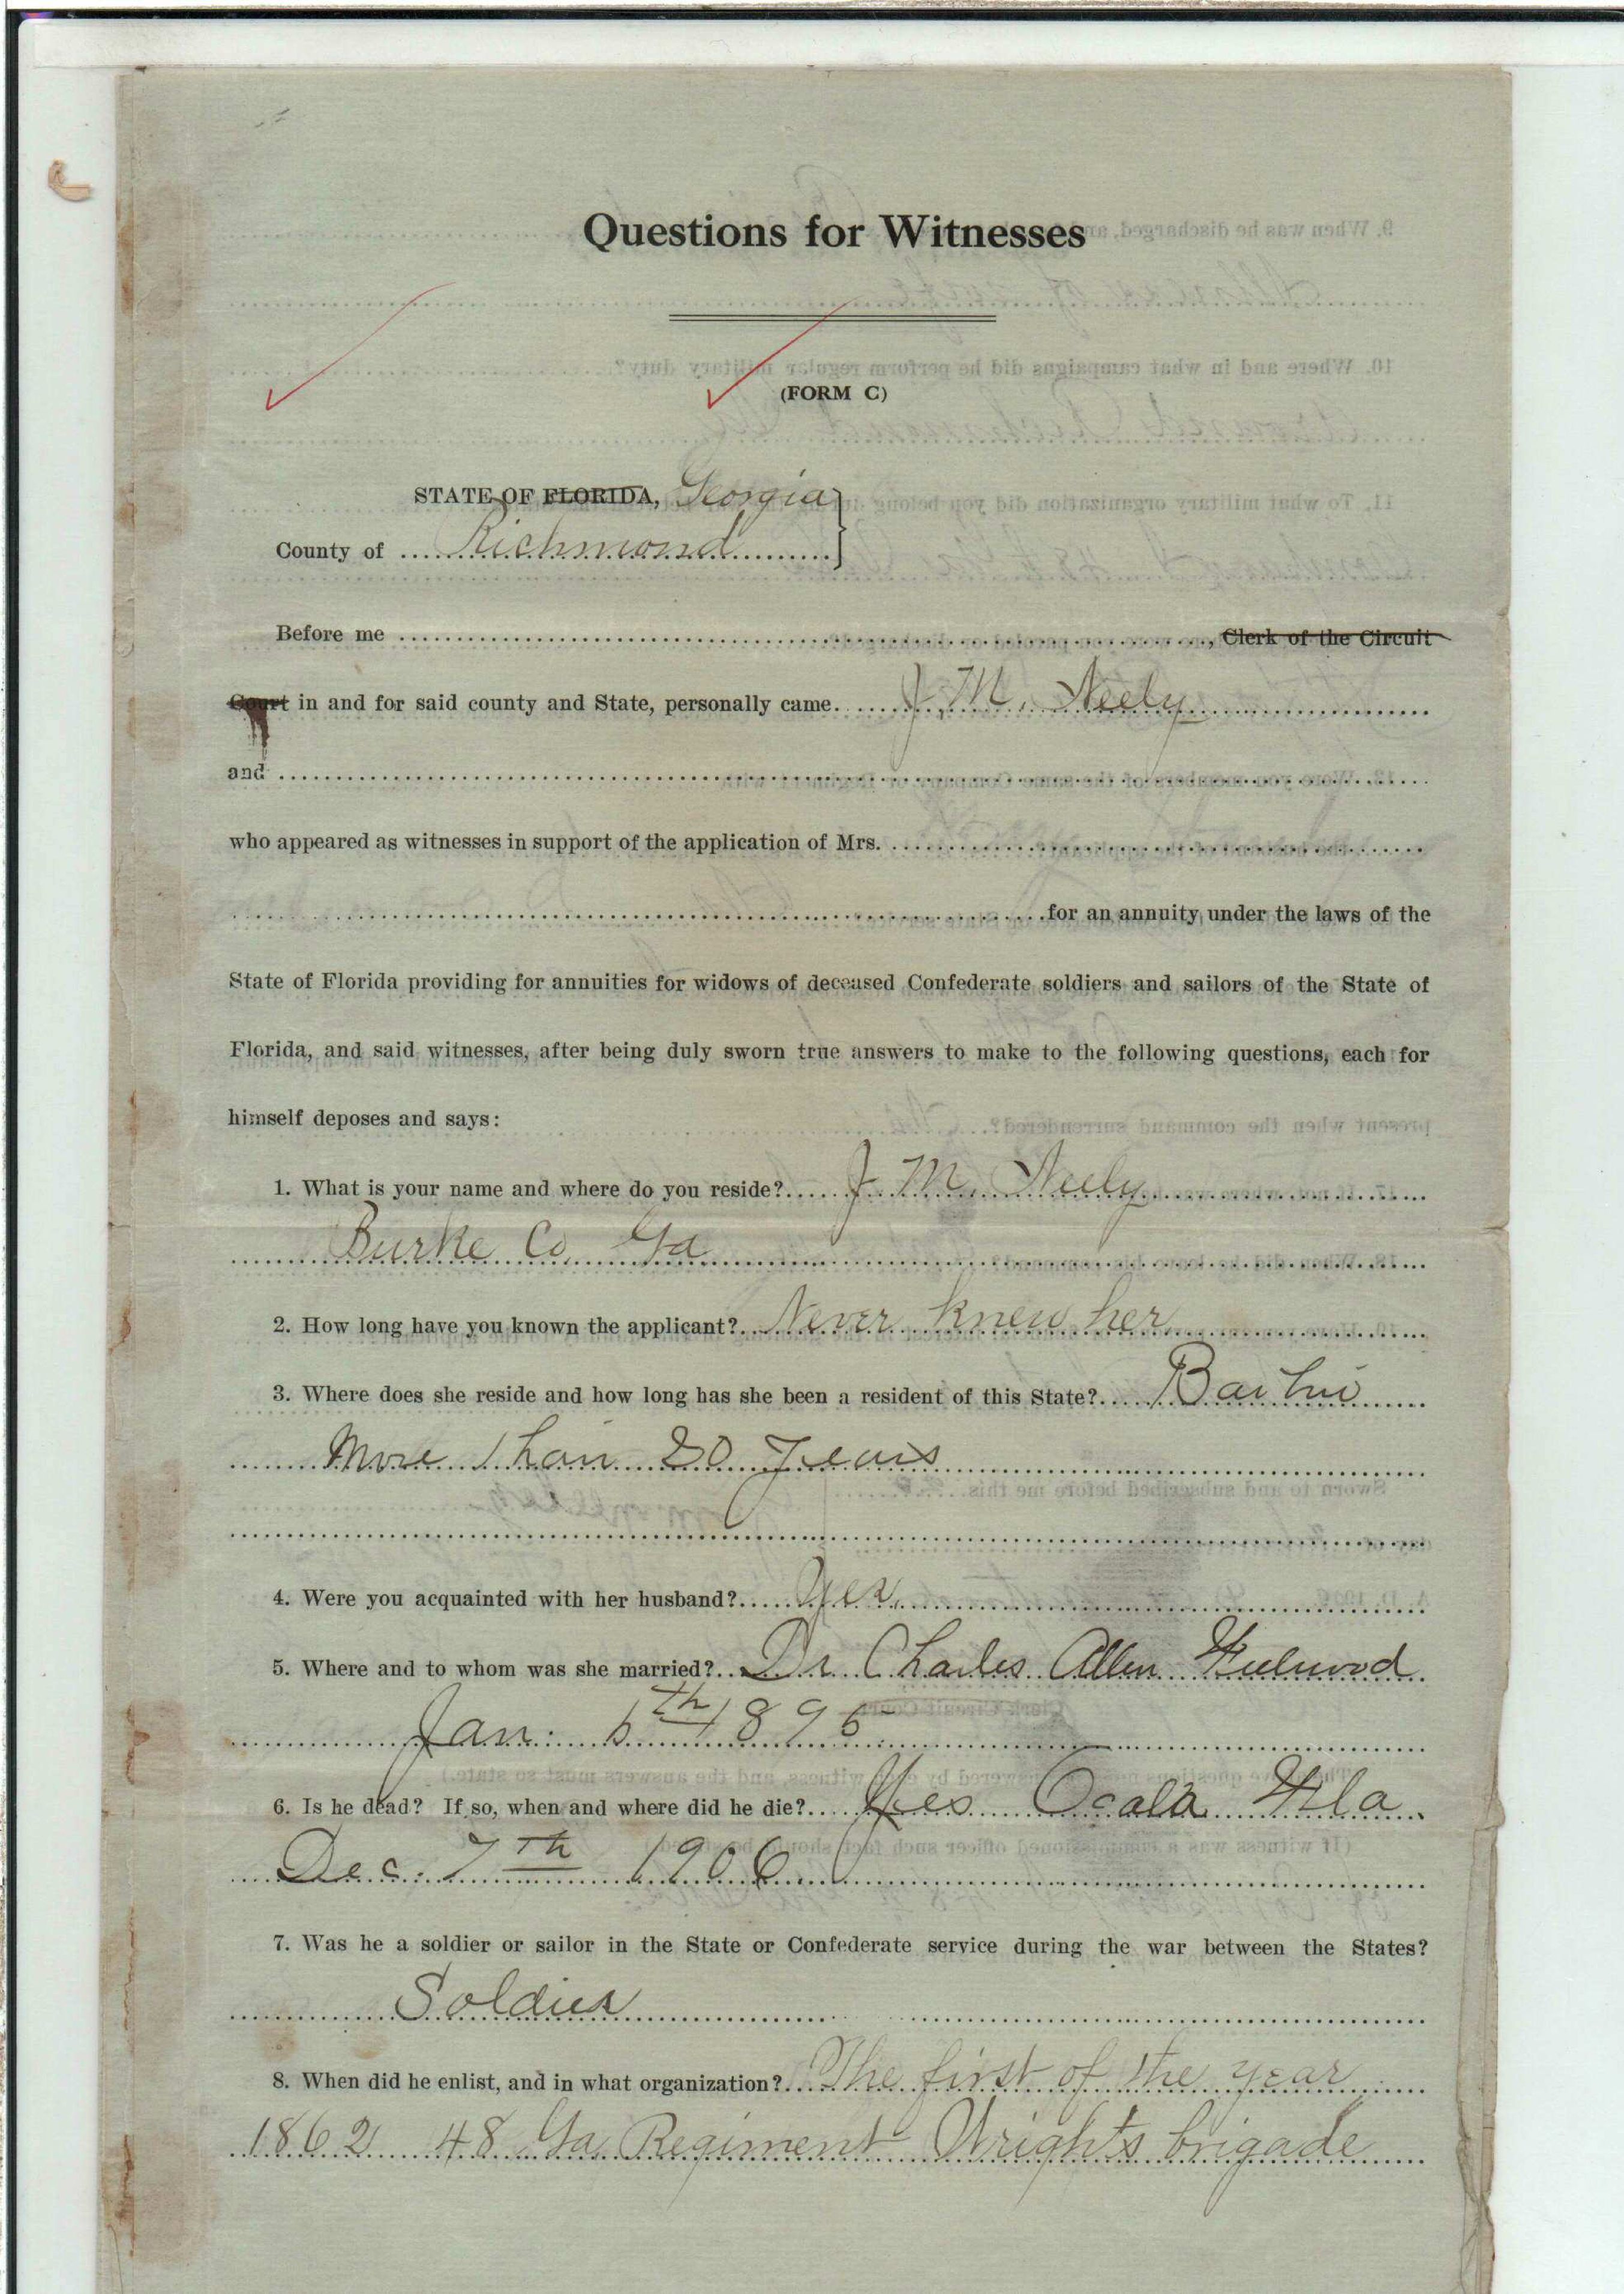 Questions for Witnesses
(FORM C)
STATE OF FLORIDA, Georgia
County of Richmond
Before me , Clerk of the Circuit
Court in and for said county and State, personally came J. M. Neely
and
who appeared as witnesses in support of the application of Mrs.
for an annuity under the laws of the
State of Florida providing for annuities for widows of deceased Confederate soldiers and sailors of the State of
Florida, and said witnesses, after being duly sworn true answers to make to the following questions, each for
himself deposes and says:
1. What is your name and where do you reside? J. M. Neely
Burke Co. Ga
2. How long have you known the applicant? Never knew her
3. Where does she reside and how long has she been a resident of this State?
More than 20 years
4. Were you acquainted with her husband? Yes.
5. Where and to whom was she married? Dr Charles Allen Fulwood
Jan. 1895
6. Is he dead? If so, when and where did he die? Yes Ocala Fla.
Dec. 7th 1906
7. Was he a soldier or sailor in the State or Confederate service during the war between the States?
Soldier
8. When did he enlist, and in what organization? The first of the year
1862 48 Ga Regiment Wrights brigade